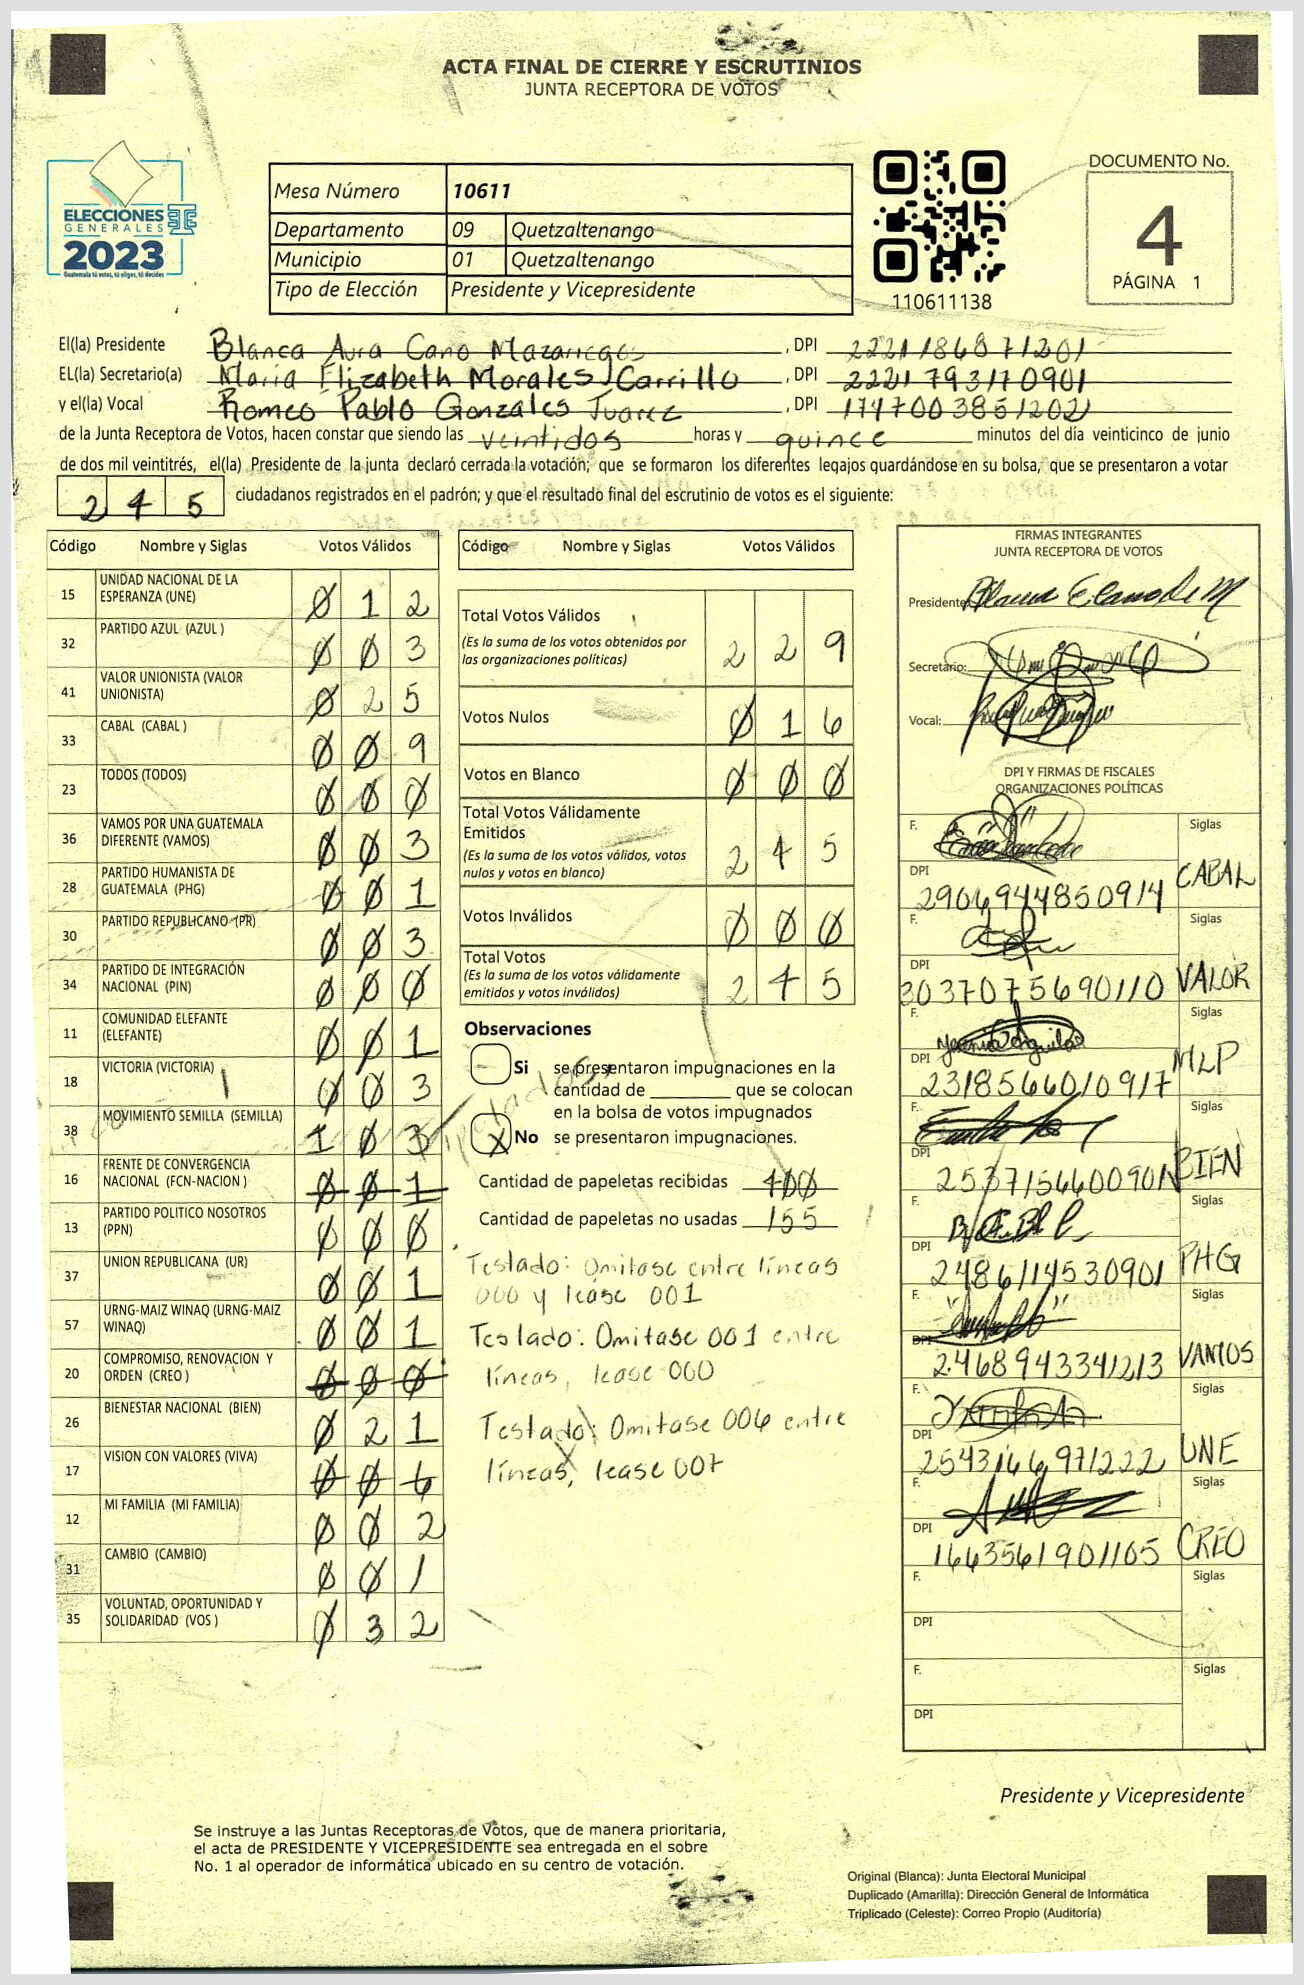 ACTA FINAL DE CIERRE Y ESCRUTINIOS
JUNTA RECEPTORA DE VOTOS
ELECCIONES
GENERALES
2023
Guatemala tú votas, tú eliges, tú decides
Mesa Número 10611
Departamento 09 Quetzaltenango
Municipio 01 Quetzaltenango
Tipo de Elección Presidente y Vicepresidente
110611138
DOCUMENTO No.
4
PÁGINA 1
El(la) Presidente Blanca Aura Cano Mazariegos, DPI 2221186871201
EL(la) Secretario(a) María Elizabeth Morales Carrillo, DPI 2221793170901
y el(la) Vocal Romeo Pablo Gonzales Juarez, DPI 1747003861202
de la Junta Receptora de Votos, hacen constar que siendo las veintidos horas y quince minutos del día veinticinco de junio
de dos mil veintitrés, el(la) Presidente de la junta declaró cerrada la votación; que se formaron los diferentes legajos guardándose en su bolsa, que se presentaron a votar
2 4 5 ciudadanos registrados en el padrón; y que el resultado final del escrutinio de votos es el siguiente:
Código Nombre y Siglas Votos Válidos
15 UNIDAD NACIONAL DE LA ESPERANZA (UNE) 0 1 2
32 PARTIDO AZUL (AZUL ) 0 0 3
41 VALOR UNIONISTA (VALOR UNIONISTA) 0 2 5
33 CABAL (CABAL ) 0 0 9
23 TODOS (TODOS) 0 0 0
36 VAMOS POR UNA GUATEMALA DIFERENTE (VAMOS) 0 0 3
28 PARTIDO HUMANISTA DE GUATEMALA (PHG) 0 0 1
30 PARTIDO REPUBLICANO (PR) 0 0 3
34 PARTIDO DE INTEGRACIÓN NACIONAL (PIN) 0 0 0
11 COMUNIDAD ELEFANTE (ELEFANTE) 0 0 1
18 VICTORIA (VICTORIA) 0 0 3
38 MOVIMIENTO SEMILLA (SEMILLA) 1 0 3
16 FRENTE DE CONVERGENCIA NACIONAL (FCN-NACION ) 0 0 1
13 PARTIDO POLITICO NOSOTROS (PPN) 0 0 0
37 UNION REPUBLICANA (UR) 0 0 1
57 URNG-MAIZ WINAQ (URNG-MAIZ WINAQ) 0 0 1
20 COMPROMISO, RENOVACION Y ORDEN (CREO ) 0 0 0
26 BIENESTAR NACIONAL (BIEN) 0 2 1
17 VISION CON VALORES (VIVA) 0 0 6
12 MI FAMILIA (MI FAMILIA) 0 0 2
31 CAMBIO (CAMBIO) 0 0 1
35 VOLUNTAD, OPORTUNIDAD Y SOLIDARIDAD (VOS ) 0 3 2
Código Nombre y Siglas Votos Válidos
Total Votos Válidos 2 2 9
(Es la suma de los votos obtenidos por
las organizaciones políticas)
Votos Nulos 0 1 6
Votos en Blanco 0 0 0
Total Votos Válidamente
Emitidos 2 4 5
(Es la suma de los votos válidos, votos
nulos y votos en blanco)
Votos Inválidos 0 0 0
Total Votos 2 4 5
(Es la suma de los votos válidamente
emitidos y votos inválidos)
Observaciones
Si se presentaron impugnaciones en la
cantidad de ________ que se colocan
en la bolsa de votos impugnados
X No se presentaron impugnaciones.
Cantidad de papeletas recibidas 400
Cantidad de papeletas no usadas 155
Testado: Omitase entre líneas
000 y léase 001
Testado: Omitase 001 entre
líneas, lease 000
Testado: Omitase 006 entre
líneas, lease 007
FIRMAS INTEGRANTES
JUNTA RECEPTORA DE VOTOS
Presidente:
Secretario:
Vocal:
DPI Y FIRMAS DE FISCALES
ORGANIZACIONES POLÍTICAS
F. Siglas
DPI 2906944850914 CABAL
F. Siglas
DPI 3037075690110 VALOR
F. Siglas
DPI 2318566010917 MLP
F. Siglas
DPI 2537156600901 BIEN
F. Siglas
DPI 2486114530901 PHG
F. Siglas
DPI 2468943341213 VAMOS
F. Siglas
DPI 2543166971222 UNE
F. Siglas
DPI 1663561901105 CREO
F. Siglas
DPI
F. Siglas
DPI
Presidente y Vicepresidente
Se instruye a las Juntas Receptoras de Votos, que de manera prioritaria,
el acta de PRESIDENTE Y VICEPRESIDENTE sea entregada en el sobre
No. 1 al operador de informática ubicado en su centro de votación.
Original (Blanca): Junta Electoral Municipal
Duplicado (Amarilla): Dirección General de Informática
Triplicado (Celeste): Correo Propio (Auditoría)